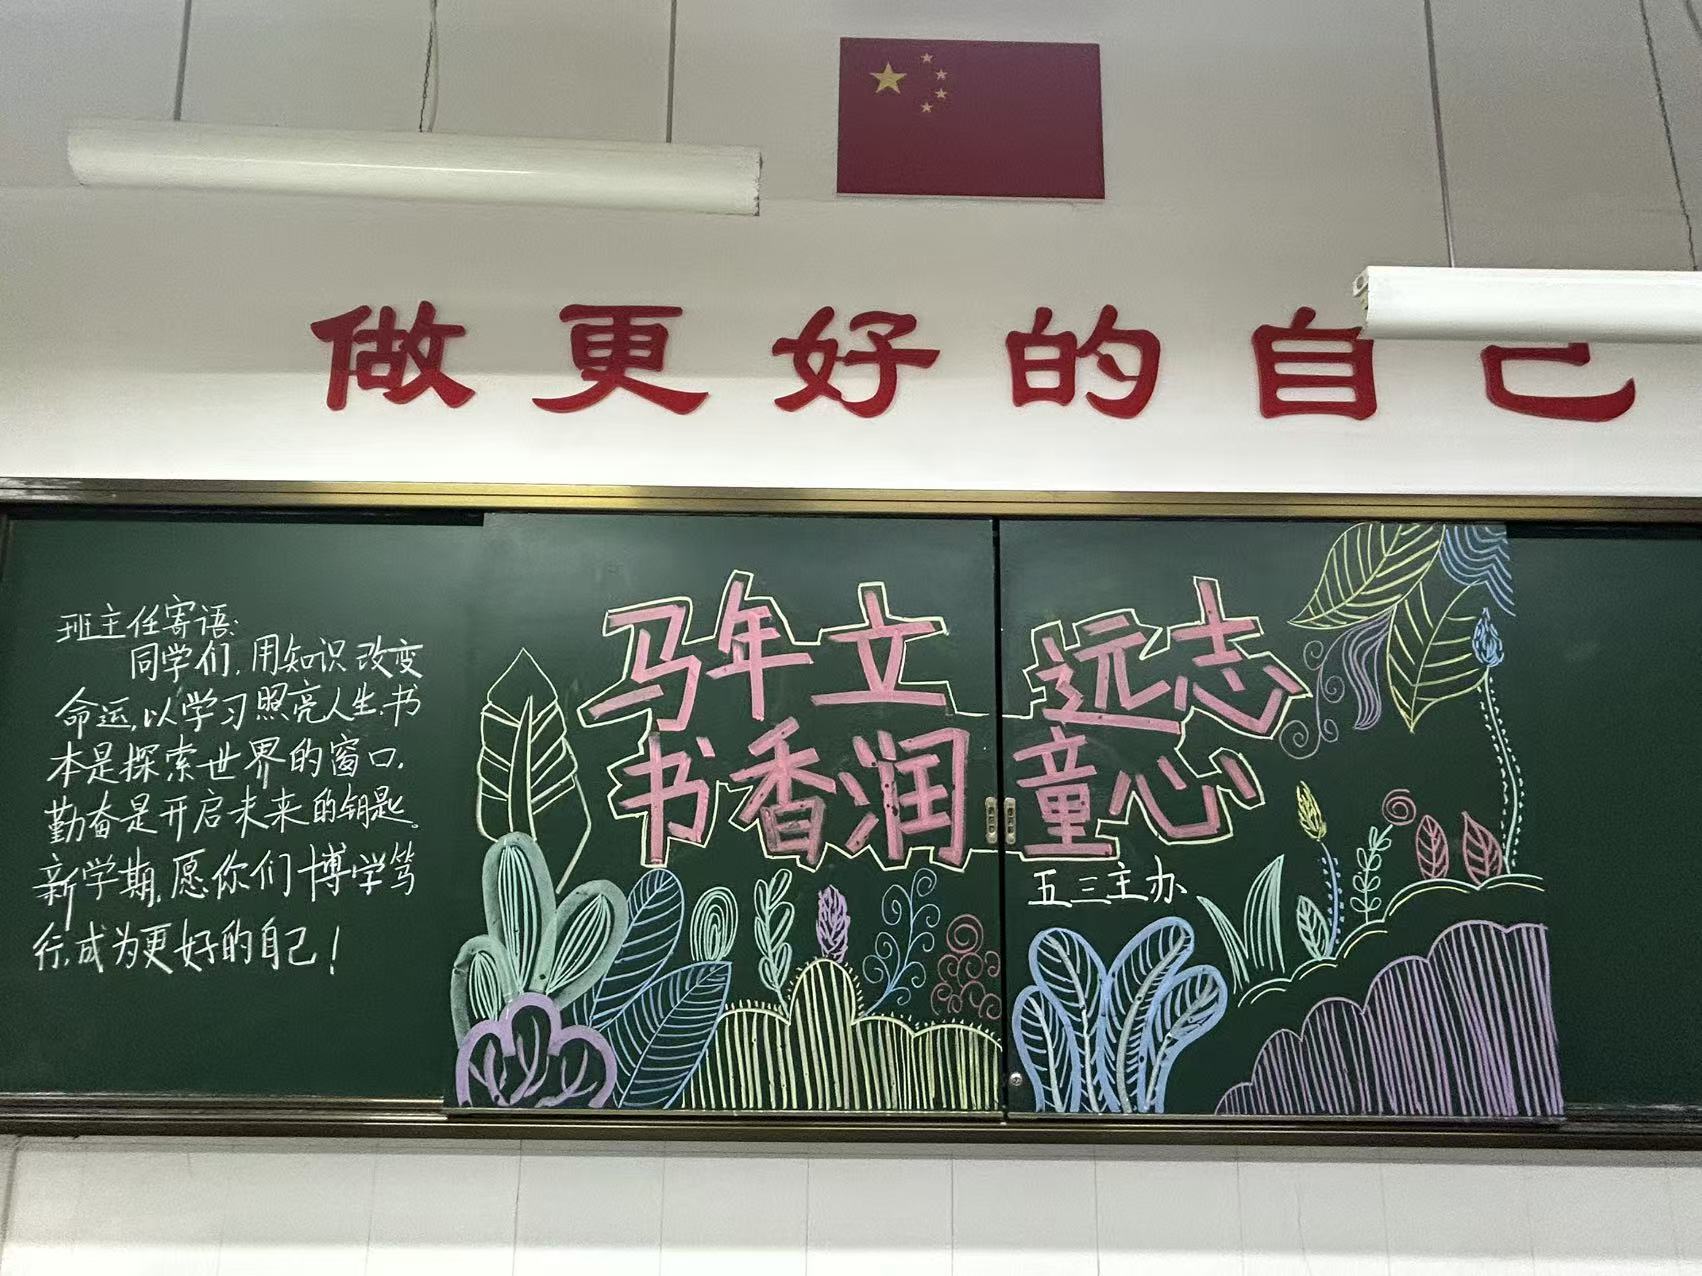 做更好的自己
班主任寄语:
同学们,用知识改变
命运,以学习照亮人生,书
本是探索世界的窗口,
勤奋是开启未来的钥匙。
新学期,愿你们博学笃
行,成为更好的自己!
马年立远志
书香润童心
五三主办